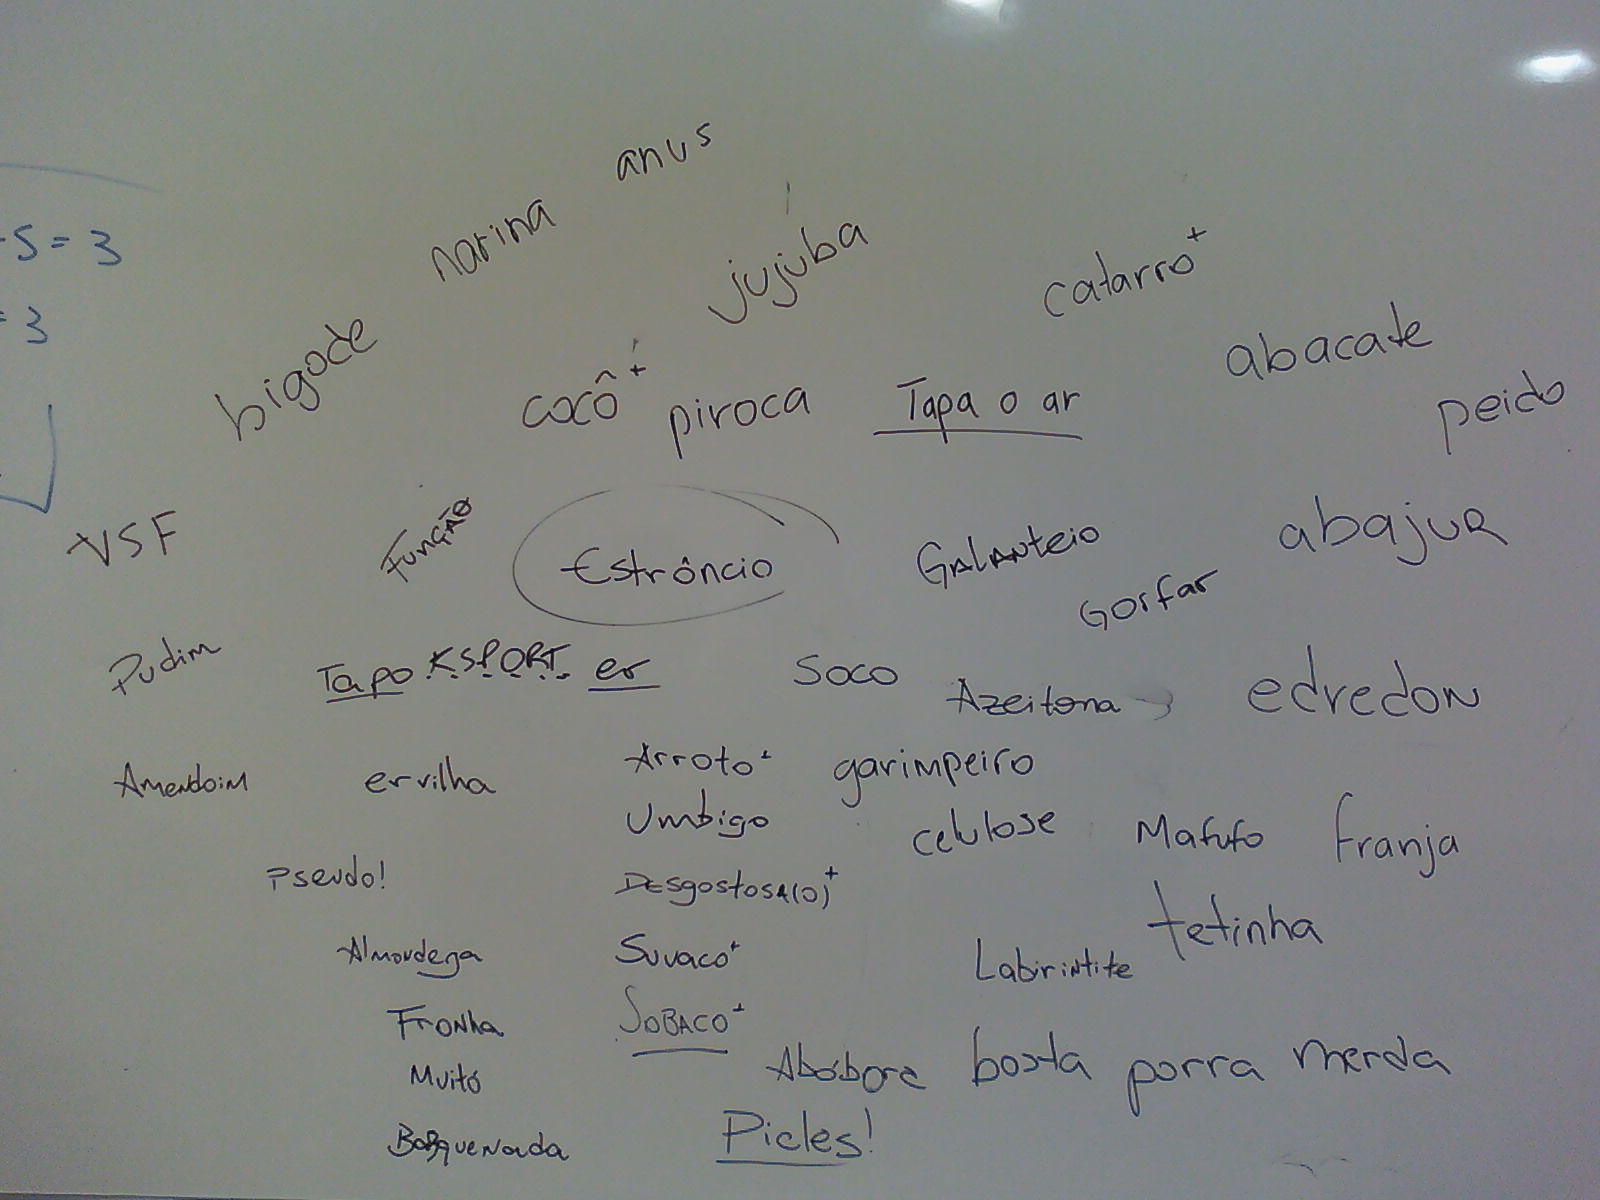 anus
narina
-5=3
jujuba
catarro+
=3
bigode
cocô+ piroca Tapa o ar
abacate
peido
VSF
Função
Estrôncio
Galanteio
abajur
Gorfar
Pudim
Tapo K.S.P.O.R.T. er
Soco
Azeitona
edredon
Amendoim
ervilha
Arroto+ garimpeiro
Umbigo
celulose
Mafufo
Franja
Pseudo!
Desgostosa(o)+
tetinha
Almondega
Suvaco+
Labirintite
Fronha
Sobaco+
Muito
Abóbora bosta porra merda
Picles!